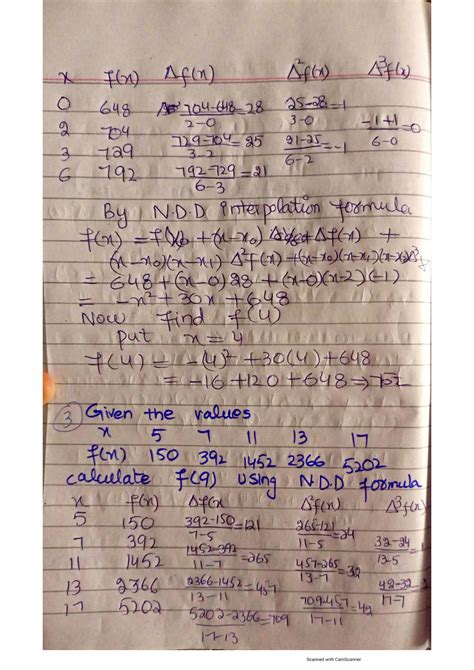 x f(x) Δf(x) Δ²f(x) Δ³f(x)
0 648 704-648/2-0 = 28 25-28/3-0 = -1 -1+1/6-0 = 0
2 704 729-704/3-2 = 25 21-25/6-2 = -1
3 729 792-729/6-3 = 21
6 792
By N.D.D interpolation formula
f(x) = f(x0 + (x-x0) Δf(x) +
(x-x0)(x-x1) Δ²f(x) + (x-x0)(x-x1)(x-x2)Δ³f
= 648 + (x-0)28 + (x-0)(x-2)(-1)
= -x² + 30x + 648
Now find f(4)
put x = 4
f(4) = -(4)² + 30(4) + 648
= -16 + 120 + 648 => 752
3 Given the values
x 5 7 11 13 17
f(x) 150 392 1452 2366 5202
calculate f(9) using N.D.D formula
x f(x) Δf(x Δ²f(x) Δ³f(x)
5 150 392-150/7-5 = 121 265-121/11-5 = 24 32-24/13-5 = 1
7 392 1452-392/11-7 = 265 457-265/13-7 = 32 42-32/17-7
11 1452 2366-1452/13-11 = 457 709-457/17-11 = 42
13 2366 5202-2366/17-13 = 709
17 5202
Scanned with CamScanner